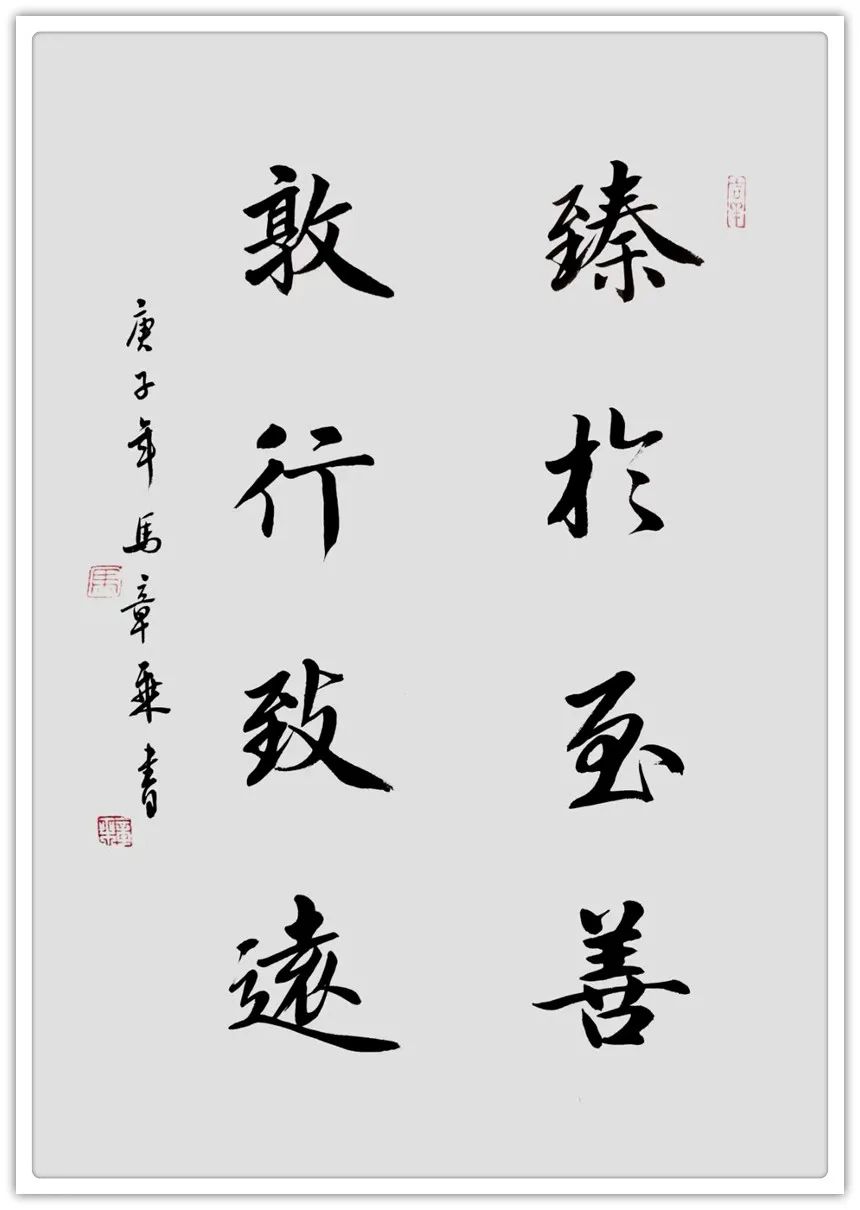 臻於至善
敦行致遠
庚子年馬章乘書
馬